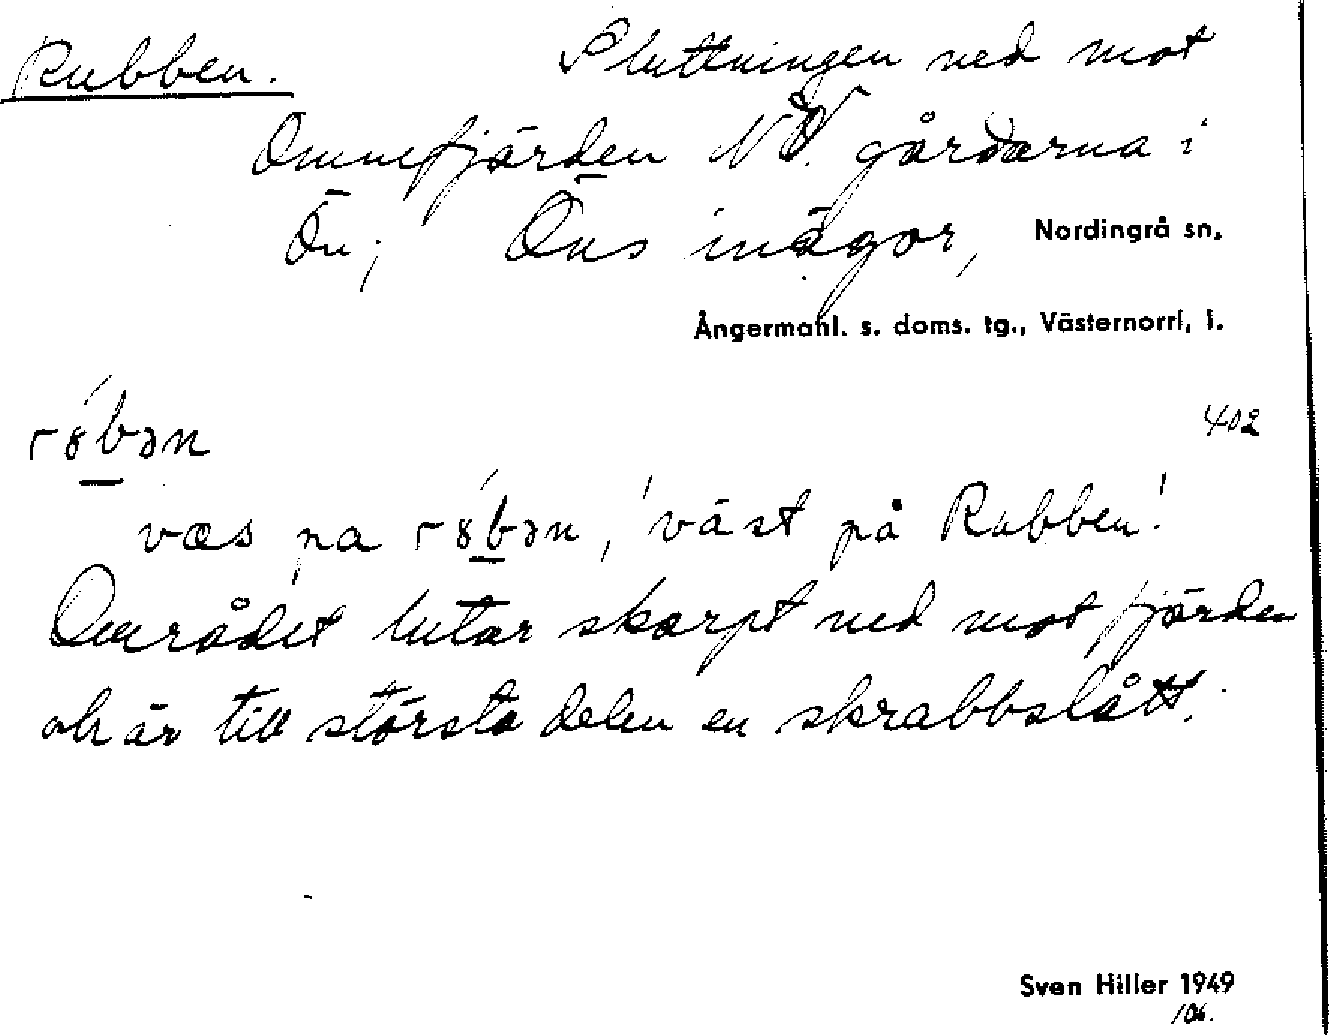 Rubben. Sluttningen ned mot
Omnefjärden NV. gårdarna i
Ön; Öns inägor, Nordingrå sn,
Ångermanl. s. doms. tg., Västernorrl. l.
402
væs pa rȣ́bən, 'väst på Rubben'
Området lutar skarpt ned mot fjärden
och är till största delen en skrabbslått.
Sven Hiller 1949